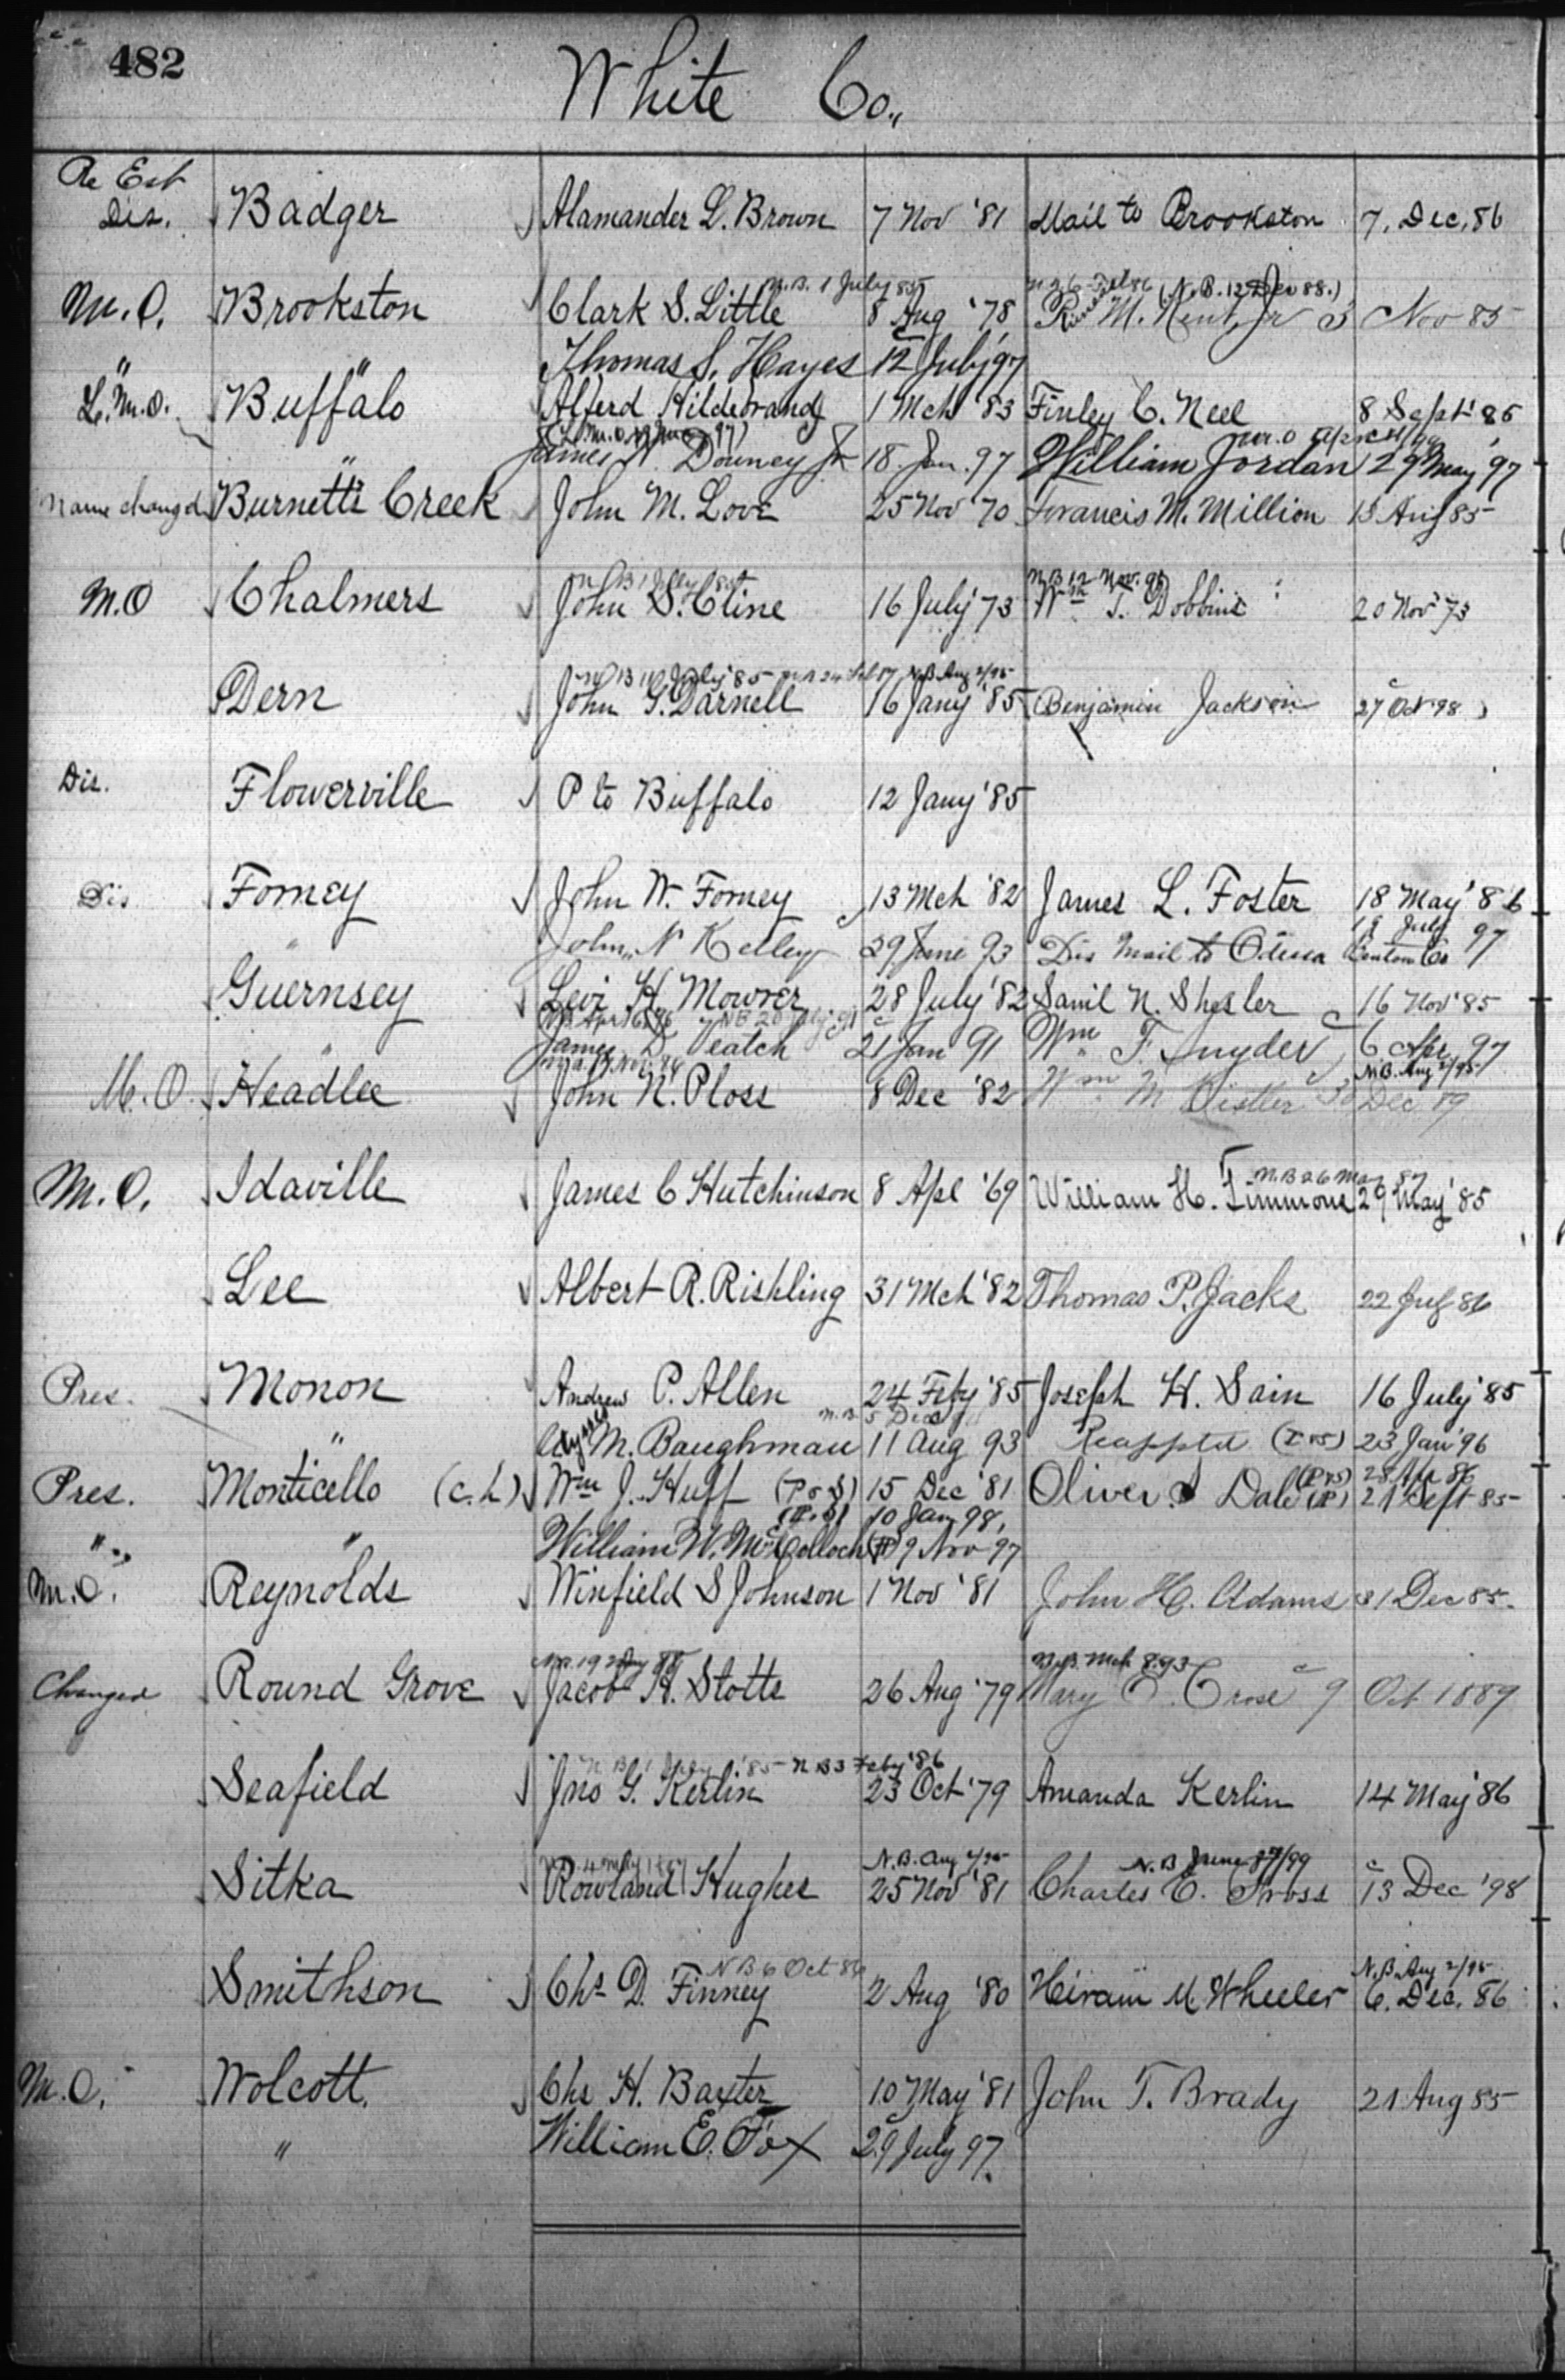 482
White Co.,
Re Est
Dis. Badger Alamander L. Brown 7 Nov '81 Mail to Brookston 7, Dec, 86
N.B. 1 July 85 (N.B. 12 Dec 88.)
M.O. Brookston Clark S. Little 8 Aug '78 M. Kent, Jr 3 Nov 85
" " Thomas S. Hayes 12 July '97
L.M.O. Buffalo Alferd Hildebrand 1 Mch '83 Finley C. Neel 8 Sept 85
" James W. Downey Jr 18 Jan. 97 William Jordan 29 May '97
Name changed Burnetts Creek John M. Love 25 Nov '70 Francis M. Million 15 Aug 85
N B 1 July 85 N B 12 Nov. 96
M.O Chalmers John S. Cline 16 July '73 Wm T. Dobbins 20 Nov '73
N B 10 July '85 N.B. Aug 2/95
Dern John G. Darnell 16 Jany '85 Benjamin Jackson 27 Oct '98
Dis. Flowerville P to Buffalo 12 Jany '85
Dis Forney John W. Forney 13 Mch '82 James L. Foster 18 May '86
" John N Kelley 29 June 93 Dis Mail to Otterbein Benton Co July 97
Guernsey Levi H. Mowrer 28 July '82 Saml N. Shesler 16 Nov '85
James D. Veatch 21 Jan 91 Wm F. Snyder 6 Apr. 97
N.B. Aug 2/95
M.O. Headlee John N. Ploss 8 Dec '82 Wm M Kistler 30 Dec 89
N.B 26 May 87
M.O. Idaville James C Hutchinson 8 Apl '69 William H. Timmons 29 May '85
Lee Albert R. Rishling 31 Mch '82 Thomas P. Jacks 22 July 86
Pres. Monon Andrew P. Allen 24 Feby '85 Joseph H. Sain 16 July '85
" Ulysses M. Baughman 11 Aug 93 Reapptd (P & S) 23 Jan '96
Pres. Monticello (C.h) Wm J. Huff (P & S) 15 Dec '81 Oliver S Dale (P) 21 Sept 85
(P & S) 10 Jan 98,
" " William W. McColloch (P) 9 Nov 97
M.O. Reynolds Winfield S Johnson 1 Nov '81 John H. Adams 31 Dec 85.
N.B. Mch 8.93
Changed Round Grove Jacob H. Stotts 26 Aug '79 Mary E. Crose 9 Oct 1889
N B 1 July '85 N B 3 Feby '86
Seafield Jno G. Kerlin 23 Oct '79 Amanda Kerlin 14 May '86
N.B. Aug 2/95 N.B June 27/99
Sitka Rowland Hughes 25 Nov '81 Charles E. Gross 13 Dec '98
N B 6 Oct 86 N.B. Aug 2/95
Smithson Chs D. Finney 2 Aug '80 Hiram M. Wheeler 6. Dec. 86
M.O. Wolcott. Chs H. Baxter 10 May '81 John T. Brady 21 Aug 85
" William E. Fox 29 July 97.